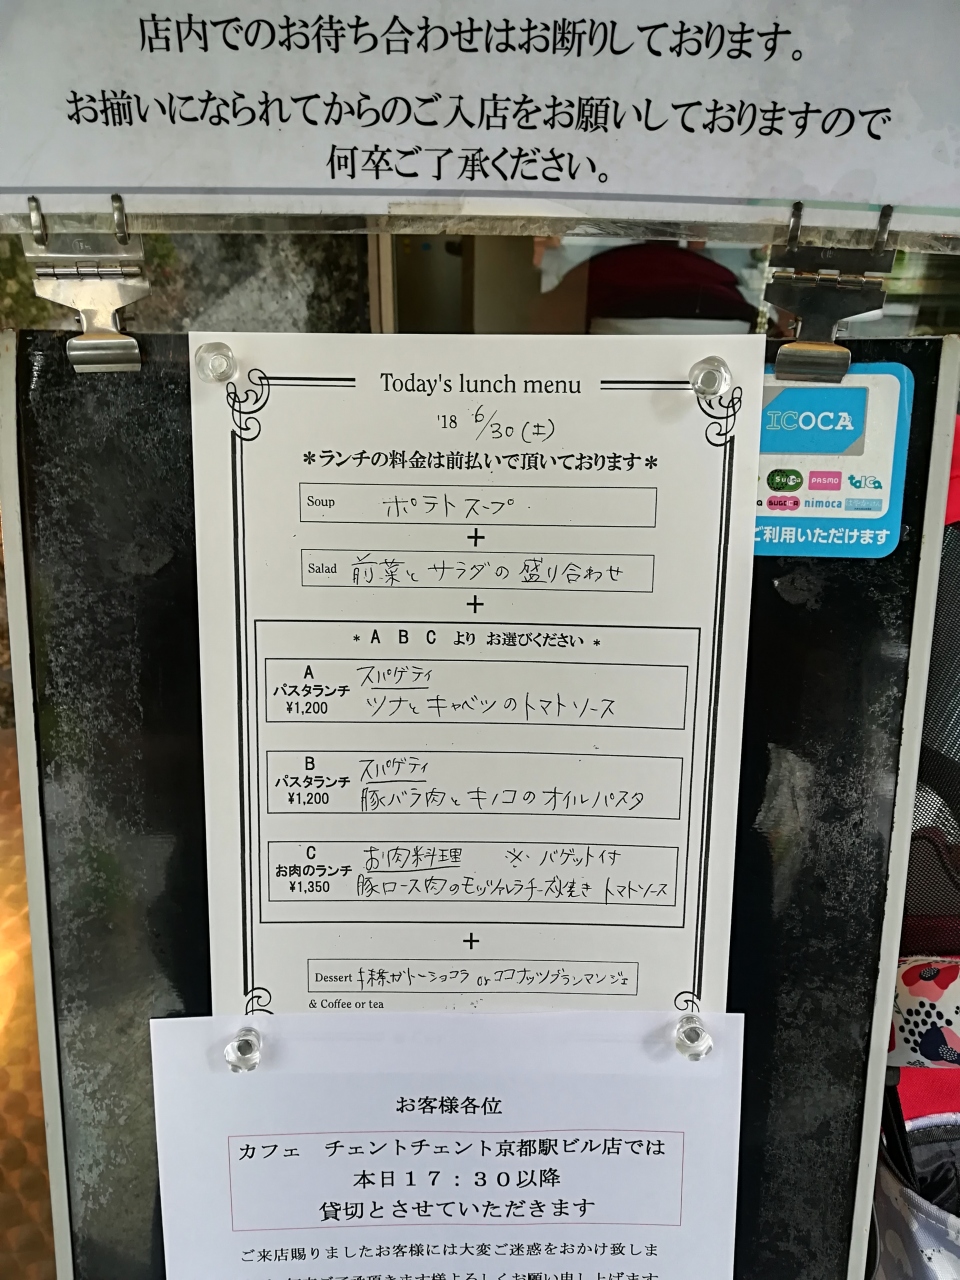 店内でのお待ち合わせはお断りしております。
お揃いになられてからのご入店をお願いしておりますので
何卒ご了承ください。
Today's lunch menu
'18 6/30(土)
*ランチの料金は前払いで頂いております*
Soup ポテトスープ
+
Salad 前菜とサラダの盛り合わせ
+
* A B C より お選びください *
A スパゲティ
パスタランチ
¥1,200 ツナとキャベツのトマトソース
B スパゲティ
パスタランチ
¥1,200 豚バラ肉とキノコのオイルパスタ
C お肉料理 ※バゲット付
お肉のランチ
¥1,350 豚ロース肉のモッツァレラチーズ焼き トマトソース
+
Dessert 抹茶ガトーショコラ orココナッツブランマンジェ
& Coffee or tea
ICOCA
Suica PASMO toica
SUGOCA nimoca
ご利用いただけます
お客様各位
カフェ チェントチェント京都駅ビル店では
本日17:30以降
貸切とさせていただきます
ご来店賜りましたお客様には大変ご迷惑をおかけ致しま